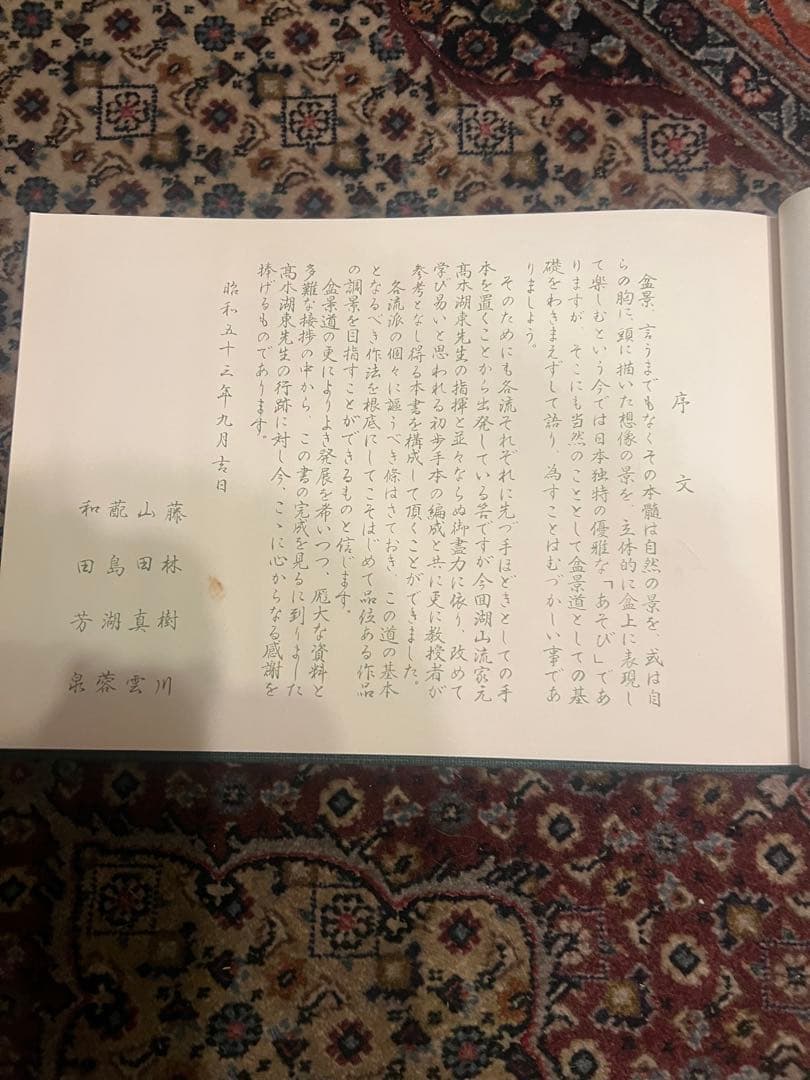 序文
盆景、言うまでもなくその本髄は自然の景を、或は自
らの胸に、頭に描いた想像の景を、立体的に盆上に表現し
て楽しむという今では日本独特の優雅な「あそび」であ
りますが、そこにも当然のこととして盆景道としての基
礎をわきまえずして語り、為すことはむづかしい事であ
りましょう。
そのためにも各流それぞれに先づ手ほどきとしての手
本を置くことから出発している筈ですが今回湖山流家元
髙木湖東先生の指揮と並々ならぬ御盡力に依り、改めて
学び易いと思われる初歩手本の編成と共に更に教授者が
参考となし得る本書を構成して頂くことができました。
各流派の個々に謳うべき條はさておき、この道の基本
となるべき作法を根底にしてこそはじめて品位ある作品
の調景を目指すことができるものと信じます。
盆景道の更によりよき発展を希いつつ、厖大な資料と
多難な接捗の中から、この書の完成を見るに到りました
髙木湖東先生の行跡に対し今、こゝに心からなる感謝を
捧げるものであります。
昭和五十三年九月吉日
藤林樹川
山田真雲
蓜島湖蓉
和田芳泉